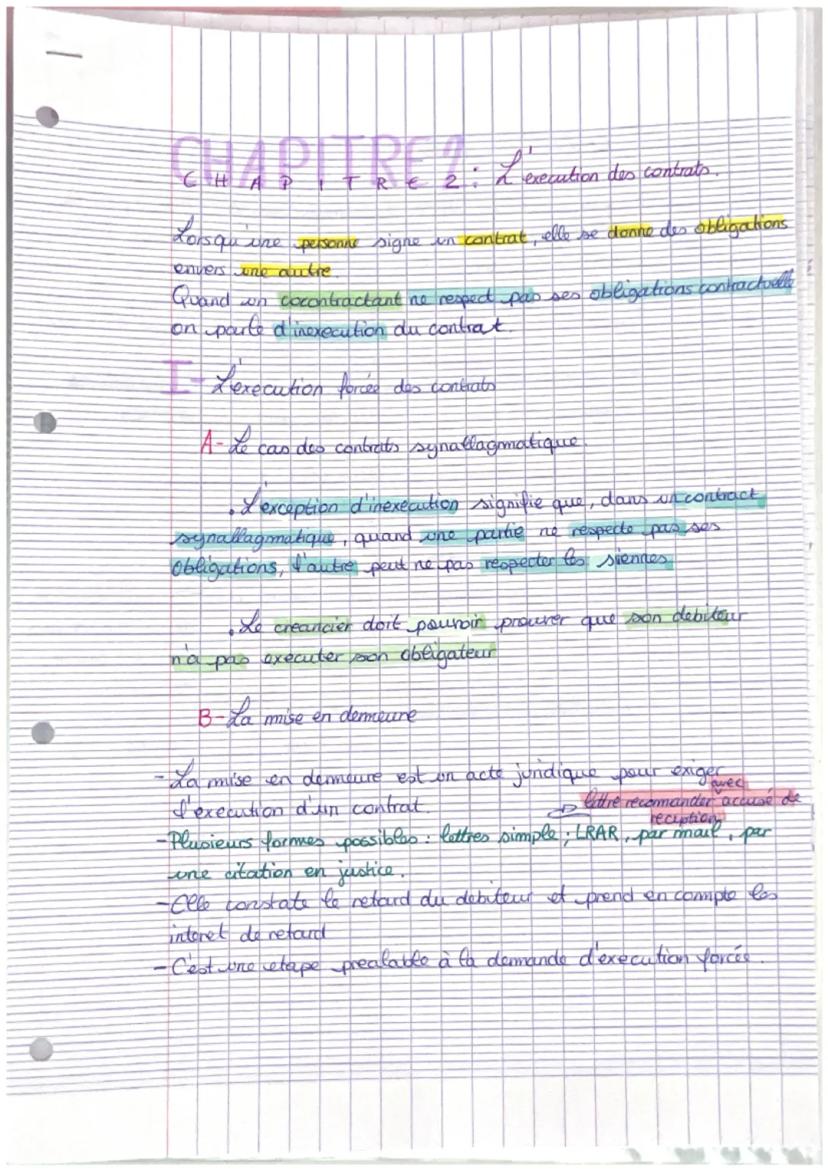 CHAPITRE 2 : L'execution des contrats.
Lorsqu'une personne signe un contrat, elle se donne des obligations
envers une autre.
Quand un cocontractant ne respect pas ses obligations contractuelle
on parle d'inexecution du contrat.
I- L'execution forcée des contrats
A- Le cas des contrats synallagmatique.
. L'exception d'inexecution signifie que, dans un contract
synallagmatique, quand une partie ne respecte pas ses
obligations, l'autre peut ne pas respecter les siennes
. Le creancier doit pouvoir prouver que son debiteur
n'a pas executer son obligateur
B- La mise en demeure
- La mise en demeure est un acte juridique pour exiger
l'execution d'un contrat.
avec
lettre recomander accusé de
reception
- Plusieurs formes possibles : lettres simple ; LRAR, par mail, par
une citation en justice.
- Elle constate le retard du debiteur et prend en compte les
interet de retard
- C'est une etape prealable à la demande d'execution forcée.